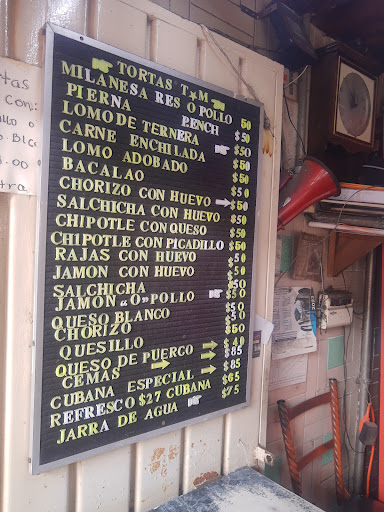 TORTAS T M
MILANESA RES O POLLO 50
PIERNA P.ENCH $50
LOMO DE TERNERA $50
CARNE ENCHILADA $50
LOMO ADOBADO $50
BACALAO $50
CHORIZO CON HUEVO $50
SALCHICHA CON HUEVO $50
CHIPOTLE CON QUESO $50
CHIPOTLE CON PICADILLO $50
RAJAS CON HUEVO $50
JAMON CON HUEVO $50
SALCHICHA $50
JAMON "O" POLLO $50
QUESO BLANCO $50
CHORIZO $50
QUESILLO $40
QUESO DE PUERCO $85
CEMAS $85
CUBANA ESPECIAL $65
REFRESCO $27 CUBANA $75
JARRA DE AGUA
tas
con:
o